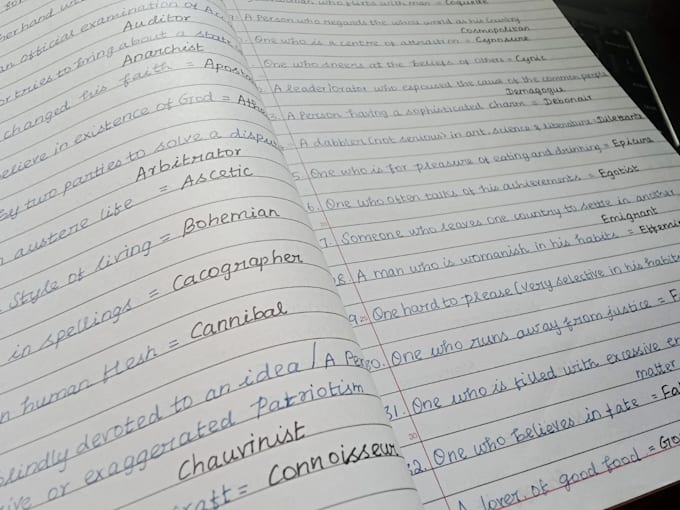 an official examination of Ac
Auditor
or tries to bring about a state
Anarchist
changed his faith = Apostate
believe in existence of God = Athe
by two parties to solve a dispute
Arbitrator
austere life = Ascetic
style of living = Bohemian
in spellings = Cacographer
human flesh = Cannibal
blindly devoted to an idea / A Person
or exaggerated Patriotism
Chauvinist
= Connoisseur
who flirts with man = Coquette
A Person who regards the whole world as his country
Cosmopolitan
One who is a centre of attraction = Cynosure
One who sneers at the beliefs of others = Cynic
A leader/orator who espoused the cause of the common people
Damagogue
3. A Person having a sophisticated charm = Debonair
A dabbler (not serious) in art, science & literature = Diletante
5. One who is for pleasure of eating and drinking = Epicure
6. One who often talks of his achievements = Egotist
7. Someone who leaves one country to settle in another
Emigrant
8. A man who is womanish in his habits =
9. One hard to please (very selective in his habits
0. One who runs away from justice =
31. One who is filled with excessive
matter
32. One who believes in fate = Fa
A lover of good food = Go